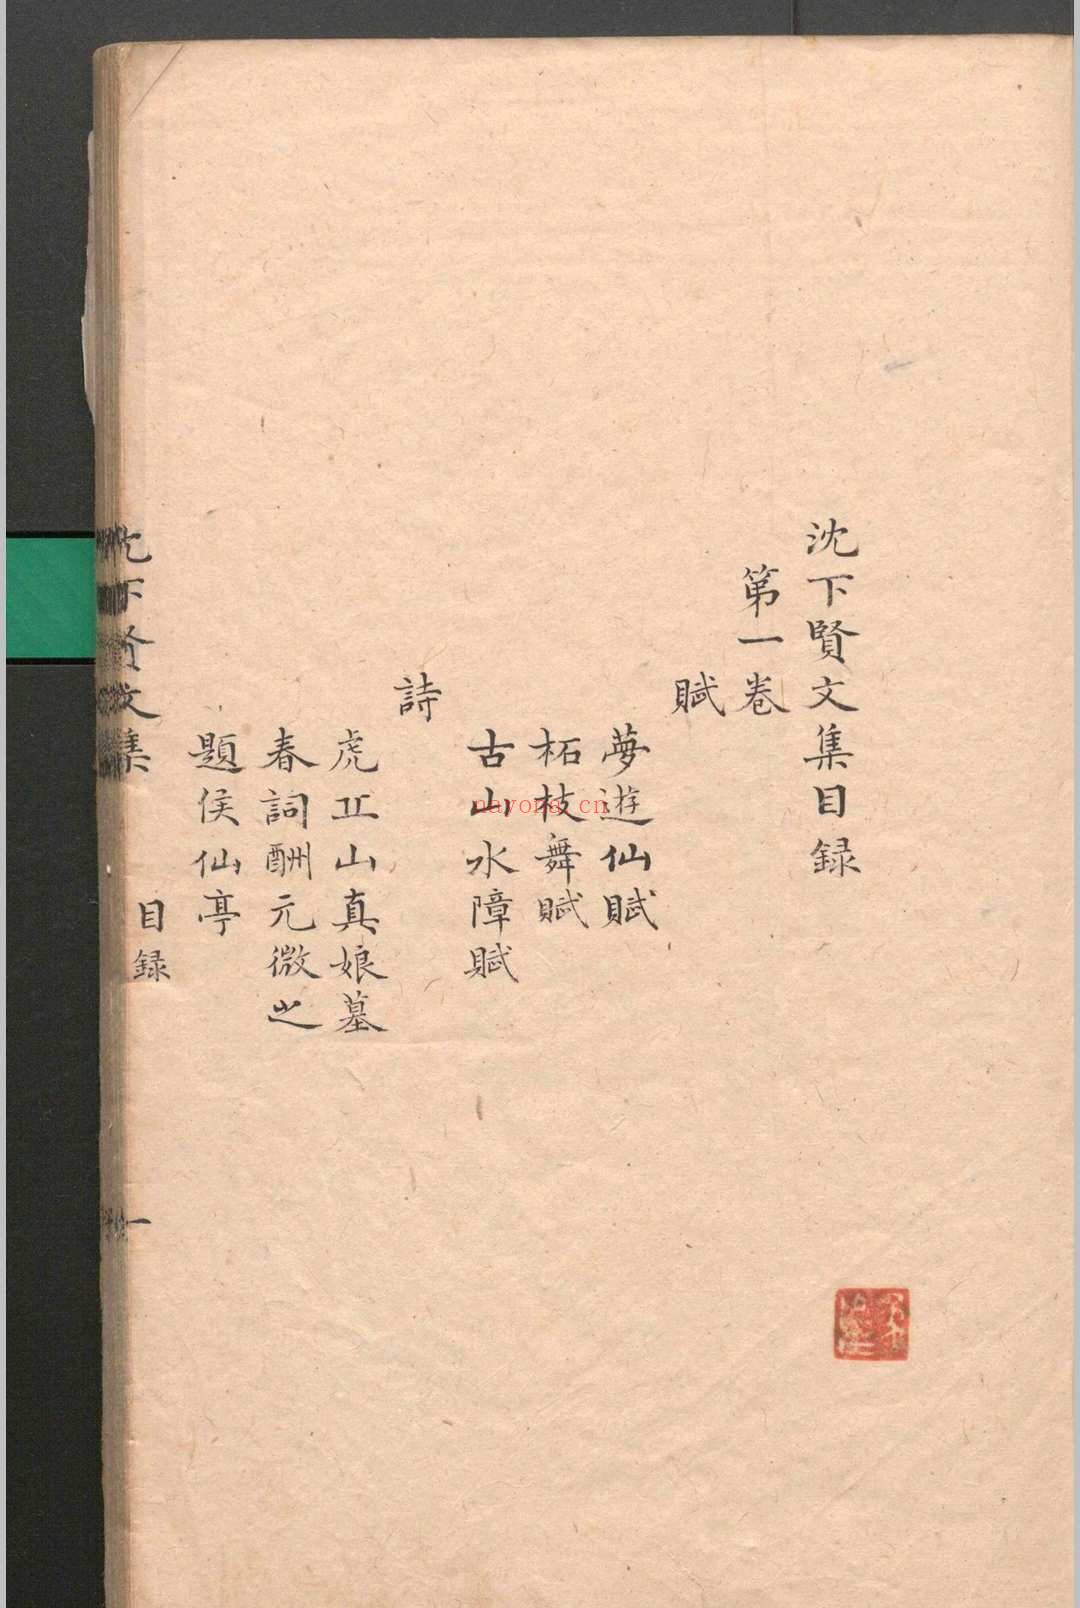 沈下賢文集目録
第一卷
賦
夢遊仙賦
柘枝舞賦
古山水障賦
詩
虎丠山真娘墓
春詞酬元微之
題侯仙亭
沈下賢文集
目録
一
nayong.cn